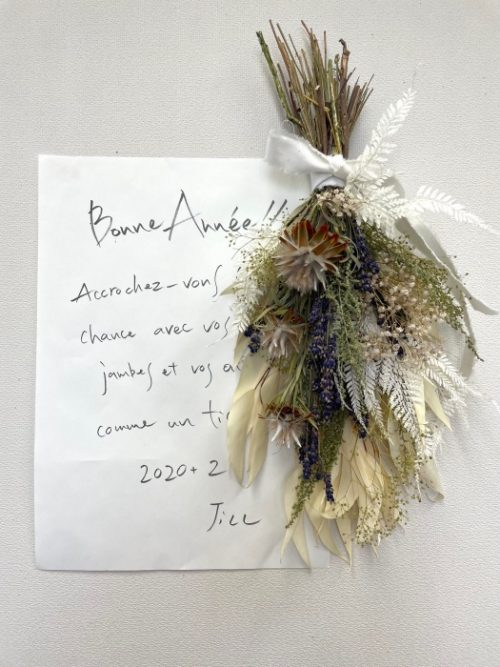 Bonne Année!!
Accrochez-vous
chance avec vos
jambes et vos
comme un
2020+2
Jill